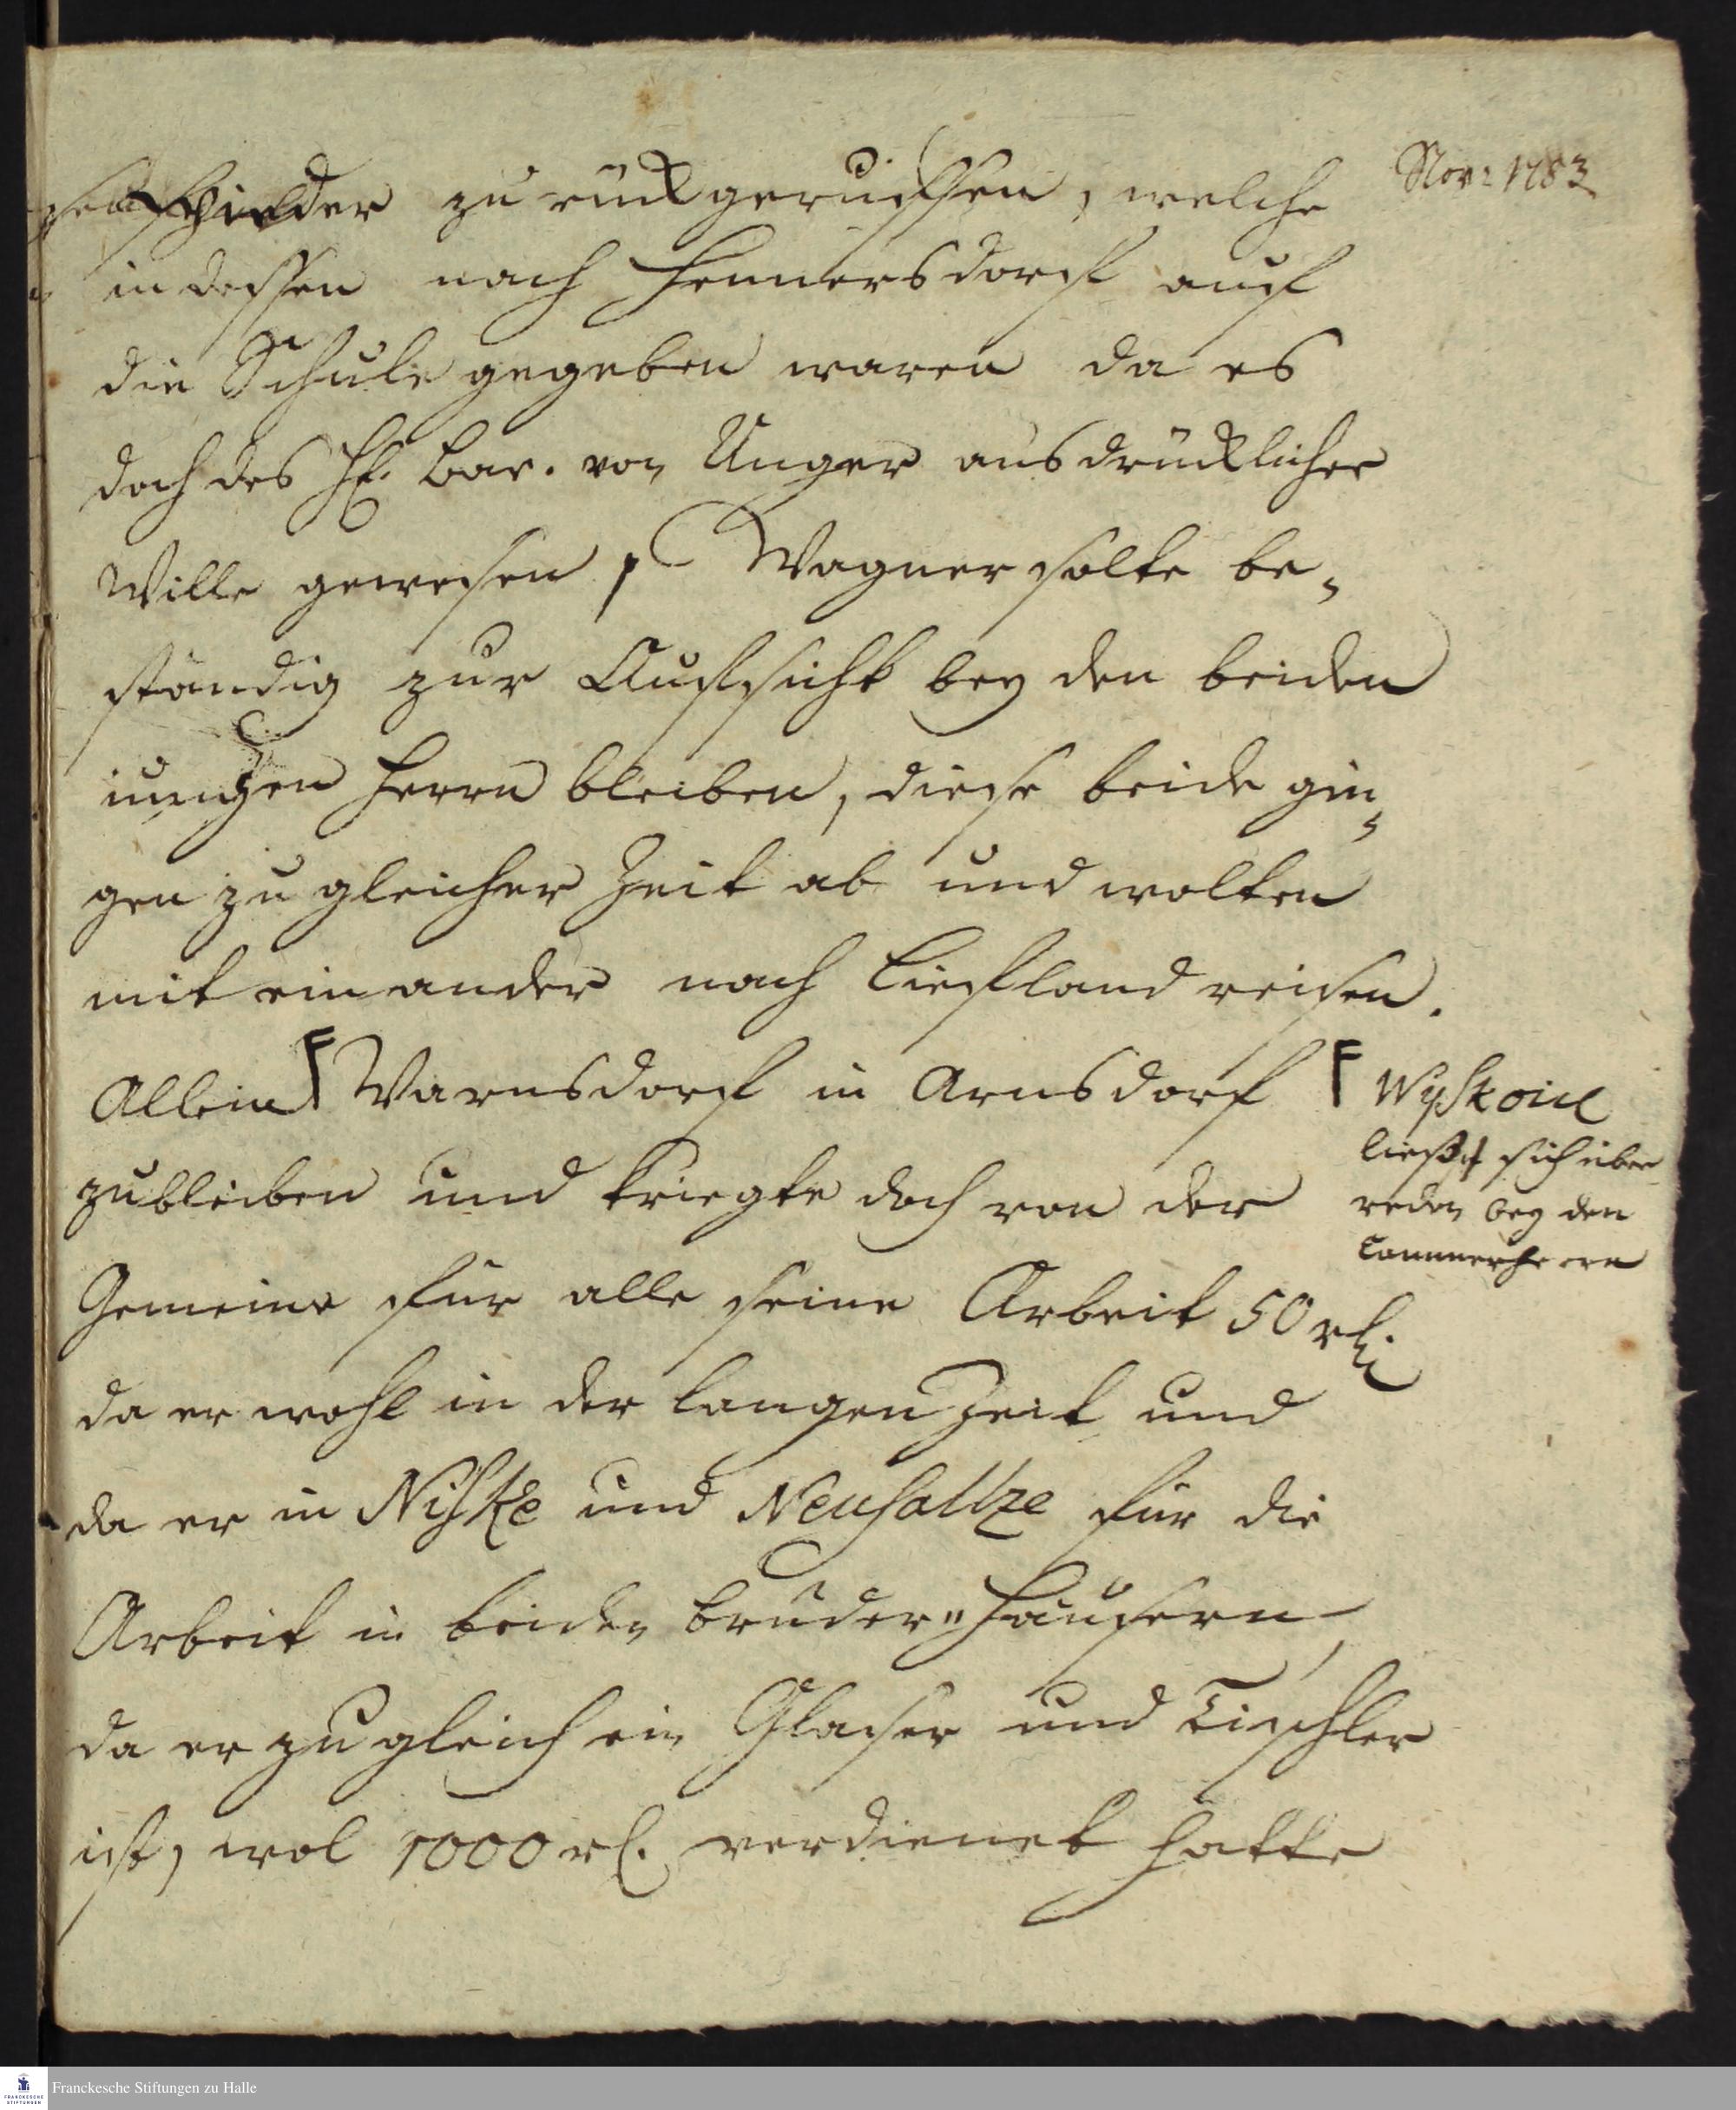 Nov: 1783
wieder zurückgeruffen, welche
indessen nach Hennersdorf auf
die Schule gegeben waren da es
doch des H. Bar. von Unger ausdrücklicher
Wille gewesen, Wagner solte be¬
ständig zur Aufsicht bey den beiden
jungen Herrn bleiben, diese beide gin¬
gen zu gleicher Zeit ab und wolten
mit einander nach Liefland reisen.
Allein F Warnsdorf in Arnsdorf
zubleiben und kriegte doch von der
Gemeine für alle seine Arbeit 50 rl.
da er wohl in der langen Zeit und
da er in Niske und Neusaltze für die
Arbeit in beiden Brüder-Häusern,
da er zugleich ein Glaser und Tischler
ist, wol 1000 rl. verdienet hatte
F Wyskoil
ließ sich über
reden bey den
Cammerherrn
Franckesche Stiftungen zu Halle
FRANCKESCHE
STIFTUNGEN